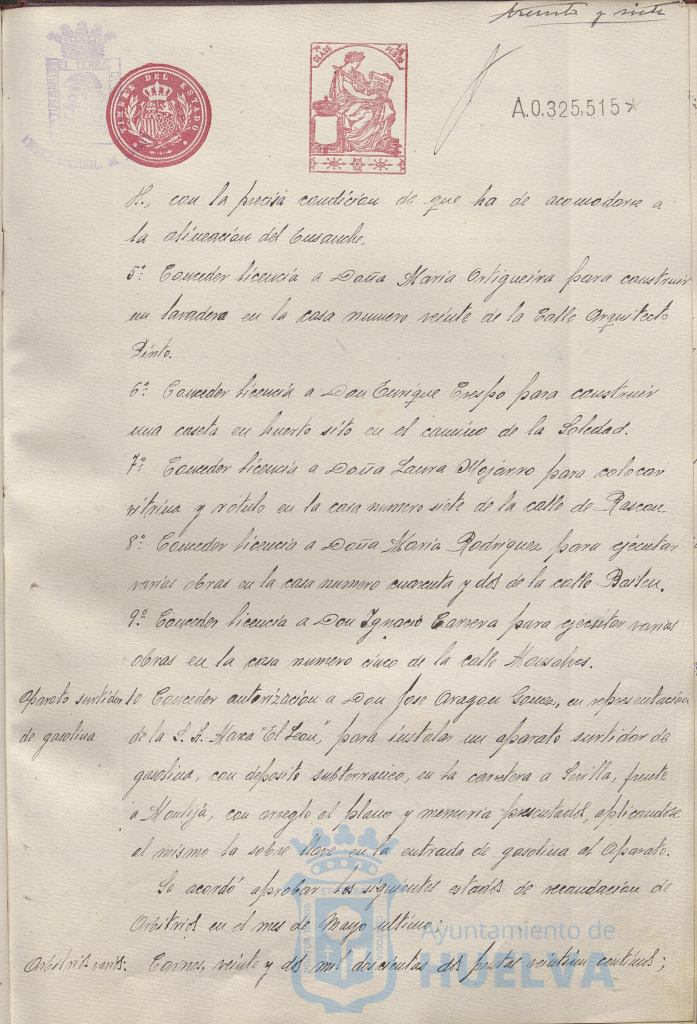 Treinta y siete
TIMBRE DEL ESTADO
CLASE
A.0.325,515*
H., con la precisa condicion de que ha de acomodarse a
la alineacion del Ensanche.
5º Conceder licencia a Doña Maria Ortigueira para construir
un lavadero en la casa numero veinte de la Calle Arquitecto
Pinto.
6º Conceder licencia a Don Enrique Crespo para construir
una caseta en huerto sito en el camino de la Soledad.
7º Conceder licencia a Doña Laura Mojarro para colocar
vitrina y rótulo en la casa numero siete de la calle de Rascon.
8º Conceder licencia a Doña Maria Rodriguez para ejecutar
varias obras en la casa numero cuarenta y dos de la calle Bailen.
9º Conceder licencia a Don Ignacio Carrera para ejecutar varias
obras en la casa numero cinco de la calle
Aparato surtidor
de gasolina
10 Conceder autorización a Don Jose Aragon Gomez, en representacion
de la S. "El Leon", para instalar un aparato surtidor de
gasolina, con deposito subterraneo, en la carretera a Sevilla, frente
a Montija, con arreglo al plano y memoria presentados, aplicandose
al mismo la sobre llave en la entrada de gasolina al Aparato.
Se acordó aprobar los siguientes estados de recaudacion de
Arbitrios en el mes de Mayo ultimo:
Arbitrios varios:
Carnes, veinte y dos mil doscientas dos pesetas veintiun centimos;
Ayuntamiento de
HUELVA